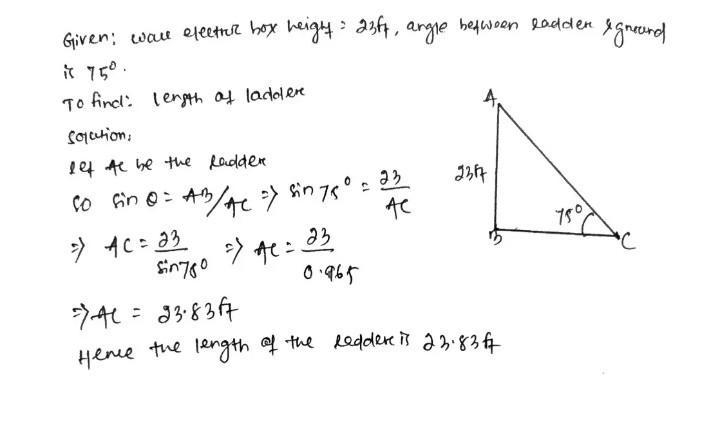 Given: wall electric box height = 23ft, angle between ladder & ground
is 75°.
To find: length of ladder
Solution:
let AC be the ladder
So sin θ = AB/AC => sin 75° = 23/AC
=> AC = 23/sin75° => AC = 23/0.965
=> AC = 23.83ft
Hence the length of the ladder is 23.83ft
A
23ft
75°
B
C